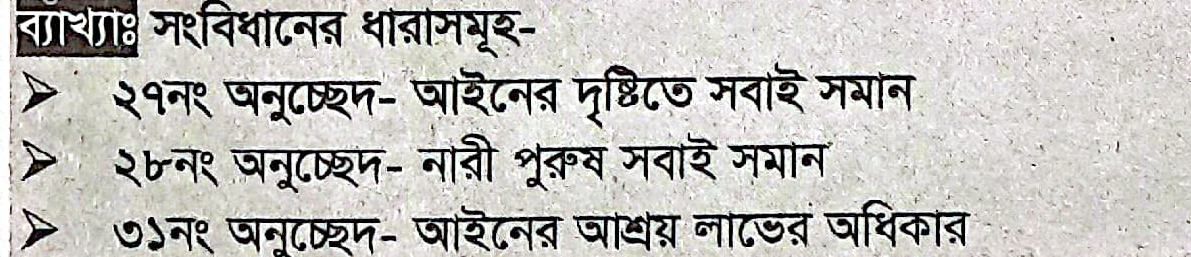 ব্যাখ্যাঃ সংবিধানের ধারাসমূহ-
➢ ২৭নং অনুচ্ছেদ- আইনের দৃষ্টিতে সবাই সমান
➢ ২৮নং অনুচ্ছেদ- নারী পুরুষ সবাই সমান
➢ ৩১নং অনুচ্ছেদ- আইনের আশ্রয় লাভের অধিকার